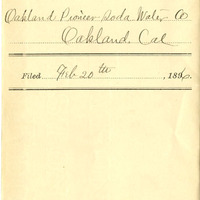 Oakland Pioneer Soda Water Co
Oakland. Cal
Filed Feb 20th , 1896.